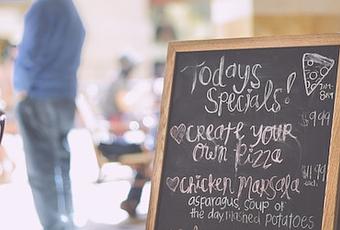 Todays
Specials!
$9.99
CREATE YOUR
OWN PIZZA
$11.99
CHICKEN MARSALA
asparagus, soup of
the day, mashed potatoes